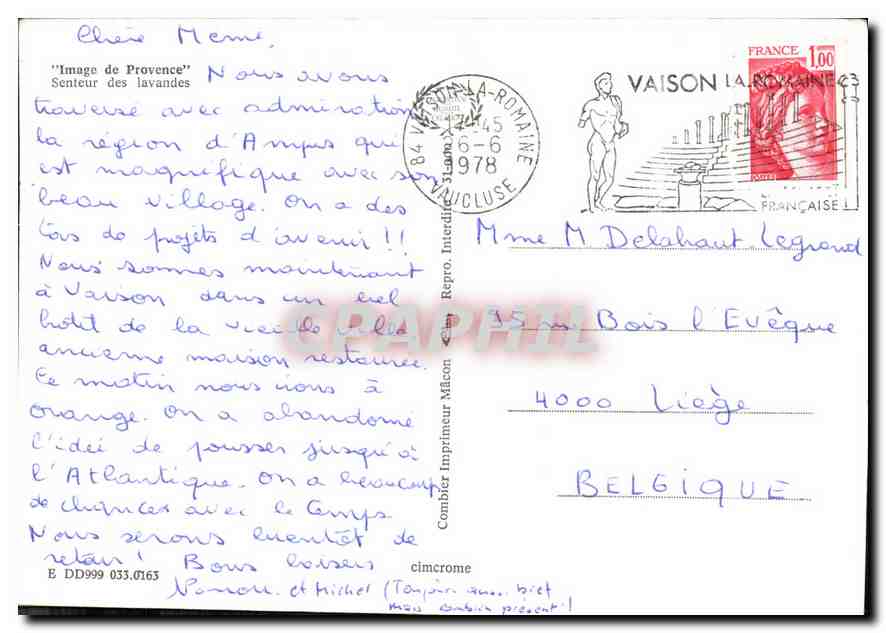 Chère Meme,
"Image de Provence"
Senteur des lavandes
Nous avons
traversé avec admiration
la région d'Ampus qui
est magnifique avec son
beau village. On a des
tas de projets d'avenir !!
Nous sommes maintenant
à Vaison dans un bel
hotel de la vieille ville
ancienne maison restaurée.
Ce matin nous irons à
Orange. On a abandonné
l'idée de pousser jusqu'à
l'Atlantique. On a beaucoup
de chances avec le temps
Nous serons bientôt de
retour ! Bons baisers
et Michel (Toujours aussi bref
mais combien présent !
E DD999 033.0163
cimcrome
Combier Imprimeur Mâcon Repro. Interdite
84 VAISON-LA-ROMAINE
-45
6-6
1978
VAUCLUSE
VAISON LA ROMAINE
FRANCE 1,00
FRANÇAISE
Mme M Delahaut Legrand
95 rue Bois l'Evêque
4000 Liège
BELGIQUE
CPAPHIL